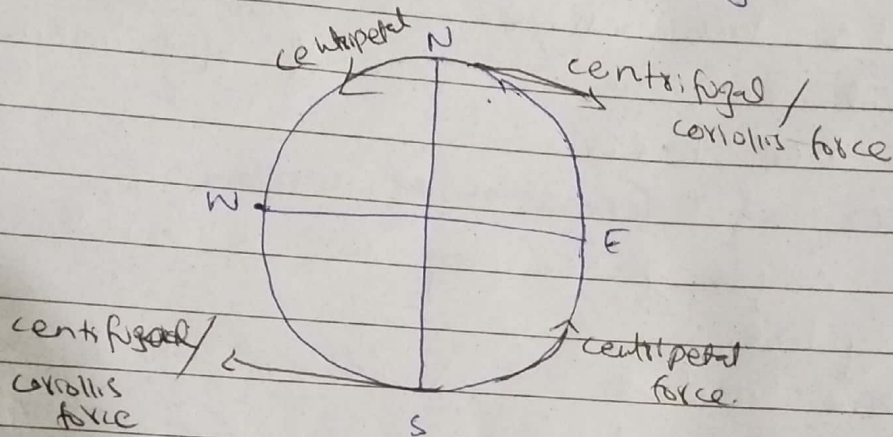 centripetal
N
centrifugal /
coriollis force
W
E
centifugal/
coriollis
force
centripetal
force.
S